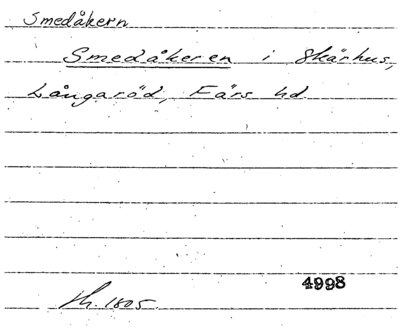 Smedåkern
Smedåkeren i Skärhus,
Långaröd, Färs hd.
4998
sk. 1805.